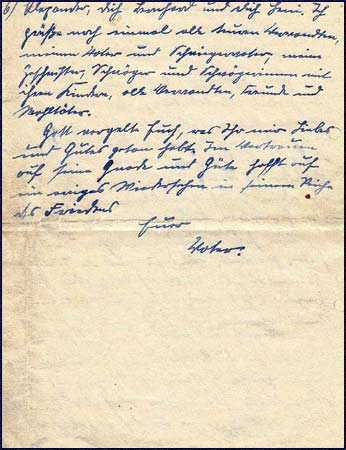 6) Alexander, dich Bernhard und dich Heini. Ich
grüße noch einmal alle teuren Verwandten,
meinen Vater und Schwiegervater, meine
Geschwister, Schwäger und Schwägerinnen mit
ihren Kindern, alle Verwandten, Freunde und
Wohltäter.
Gott vergelte Euch, was Ihr mir Liebes
und Gutes getan habt. Im Vertrauen
auf seine Gnade und Güte hofft auf
ein ewiges Wiedersehen in seinem Reiche
des Friedens
Euer
Vater.